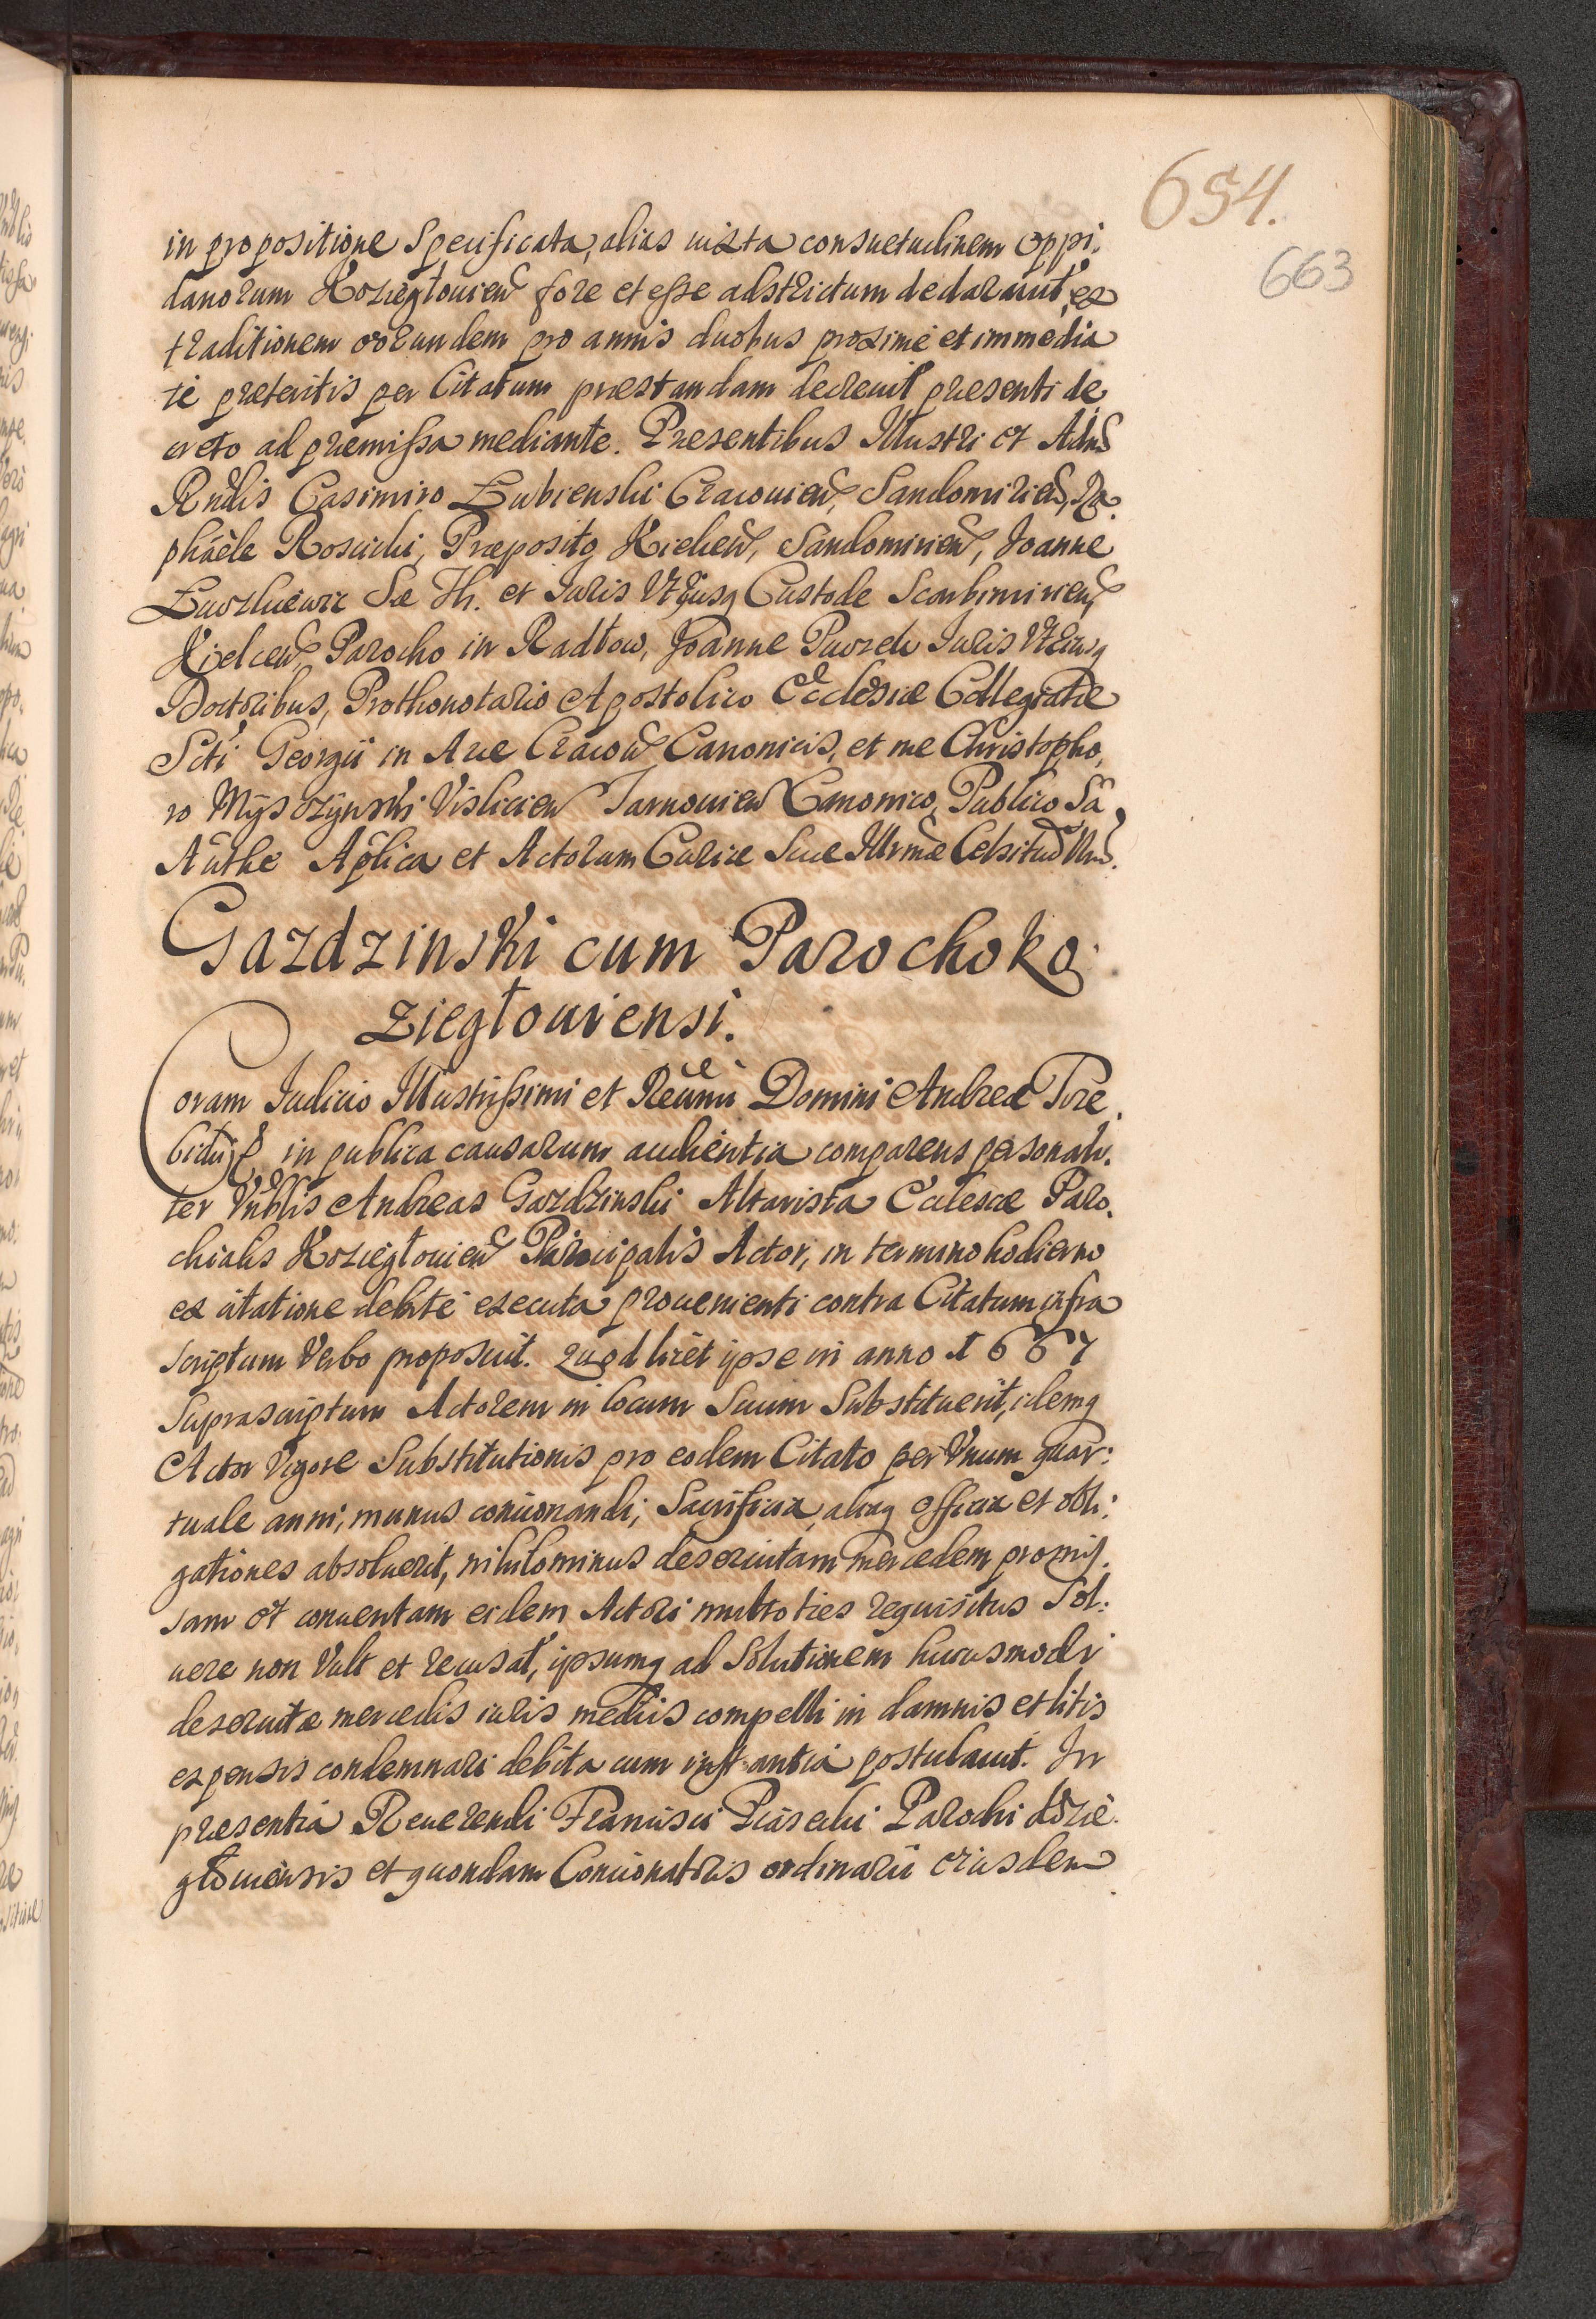 654.
663
in propositione Specificata, alias iuxta consuetudinem oppi,
danorum Koziegłouien fore et esse adstrictum declarauit, et
traditionem eorundem pro annis duobus proxime et immedia
te praeteritis per Citatum praestandam decreuit praesenti de
creto ad praemissa mediante. Praesentibus Illustri et Adm
Rndis Casimiro Łubienski Cracouien, Sandomirien, Ra,
phaele Rosicki, Praeposito Kielcen, Sandomirien, Joanne
Ławrkiewic Sae Th. et Juris Vtriusq Custode Scarbimirien,
Kielcen, Parocho in Radłow, Joanne Pawzek Juris Vtriusq
Doctoribus, Prothonotario Apostolico Ecclesiae Collegiatae
Scti Georgii in Arce Cracou Canonicis, et me Christopho,
ro Myszczynski Vislicien Tarnouien Canonico, Publico Sa
Authe Aplica et Actorum Curiae Suae Illrmae Celsitud
Gazdzinski cum Parocho Ko
ziegłouiensi.
Coram Judicio Illustrissimi et Reumi Domini Andreae Tre,
bicki in publica causarum audientia comparens personali,
ter Vnblis Andreas Gazdzinski Altarista Ecclesiae Paro,
chialis Koziegłouien Principalis Actor, in termino hodierno
ex citatione debite executa prouenienti contra Citatum infra
scriptum Verbo proposuit. Quod licet ipse in anno 1667
Suprascriptum Actorem in locum Suum Substituerit, idemq
Actor Vigore Substitutionis pro eodem Citato per Vnum quar:
tuale anni, munus concionandi, Sacrificia, aliaq officia et obli:
gationes absoluerit, nihilominus deseruitam mercedem promis,
sam et conuentam eidem Actori multoties requisitus Sol:
uere non Vult et recusat, ipsumq ad Solutionem huiusmodi
deseruitae mercedis iuris mediis compelli in damnis et litis
expensis condemnari debita cum instantia postulauit. In
praesentia Reuerendi Francisci Piasecki Parochi Kozie
głouiensis et quondam Concionatoris ordinarii eiusdem